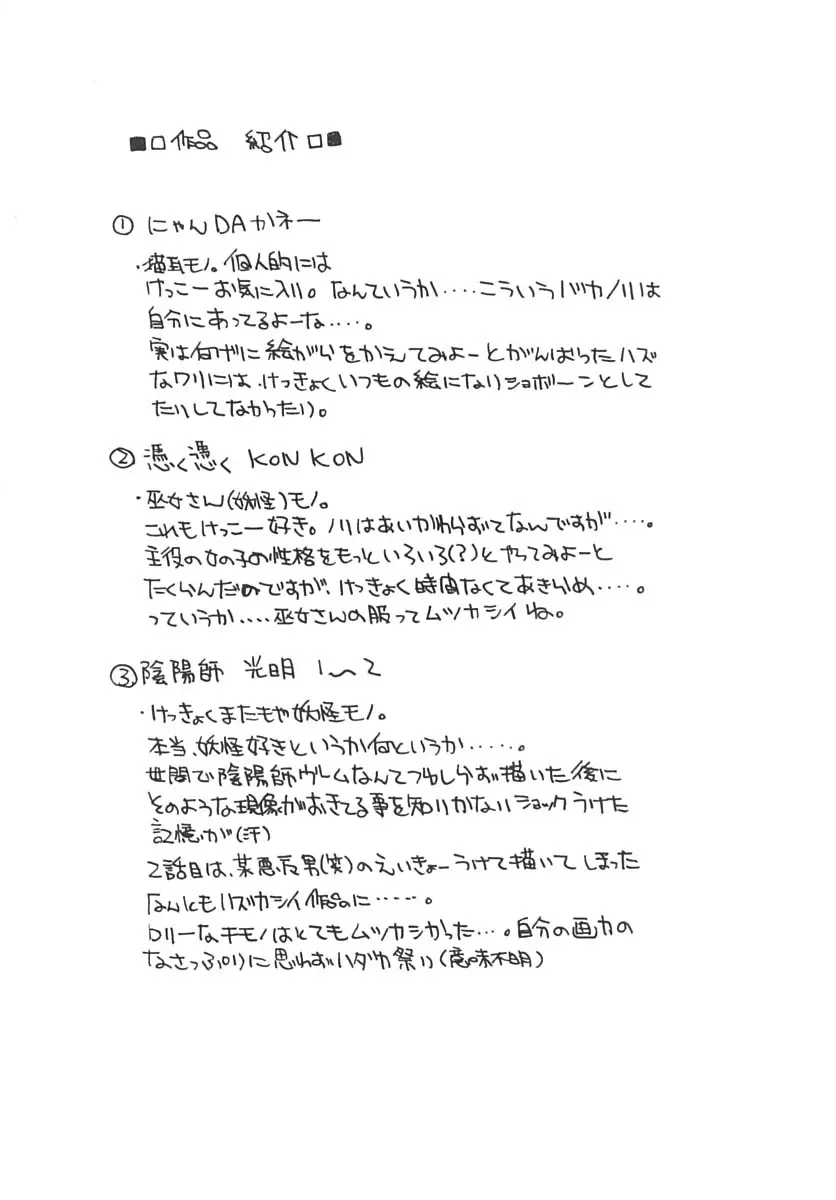 ■□作品 紹介□■
① にゃんDAかネー
・猫耳モノ。個人的には
けっこーお気に入り。なんていうか‥‥こういうバカノリは
自分にあってるよーな‥‥。
実は何げに絵がらをかえてみよーとがんばったハズ
なワリには、けっきょくいつもの絵になりショボーンとして
たりしてなかったり。
② 憑く憑く KON KON
・巫女さん(妖怪)モノ。
これもけっこー好き。ノリはあいかわらずてなんですが‥‥。
主役の女の子の性格をもっといろいろ(?)とやってみよーと
たくらんだのですが、けっきょく時間なくてあきらめ‥‥。
っていうか‥‥巫女さんの服ってムツカシイね。
③ 陰陽師 光明 1〜2
・けっきょくまたもや妖怪モノ。
本当、妖怪好きというか何というか‥‥‥。
世間で陰陽師ヴームなんてつゆしらず描いた後に
そのような現象がおきてる事を知りかないショックうけた
記憶が(汗)
2話目は、某悪 男(笑)のえいきょーうけて描いてしまった
なんともハズカシイ作品に‥‥‥。
ロリーなキモノはとてもムツカシかった‥‥。自分の画力の
なさっぷりに思わずハダカ祭り(意味不明)